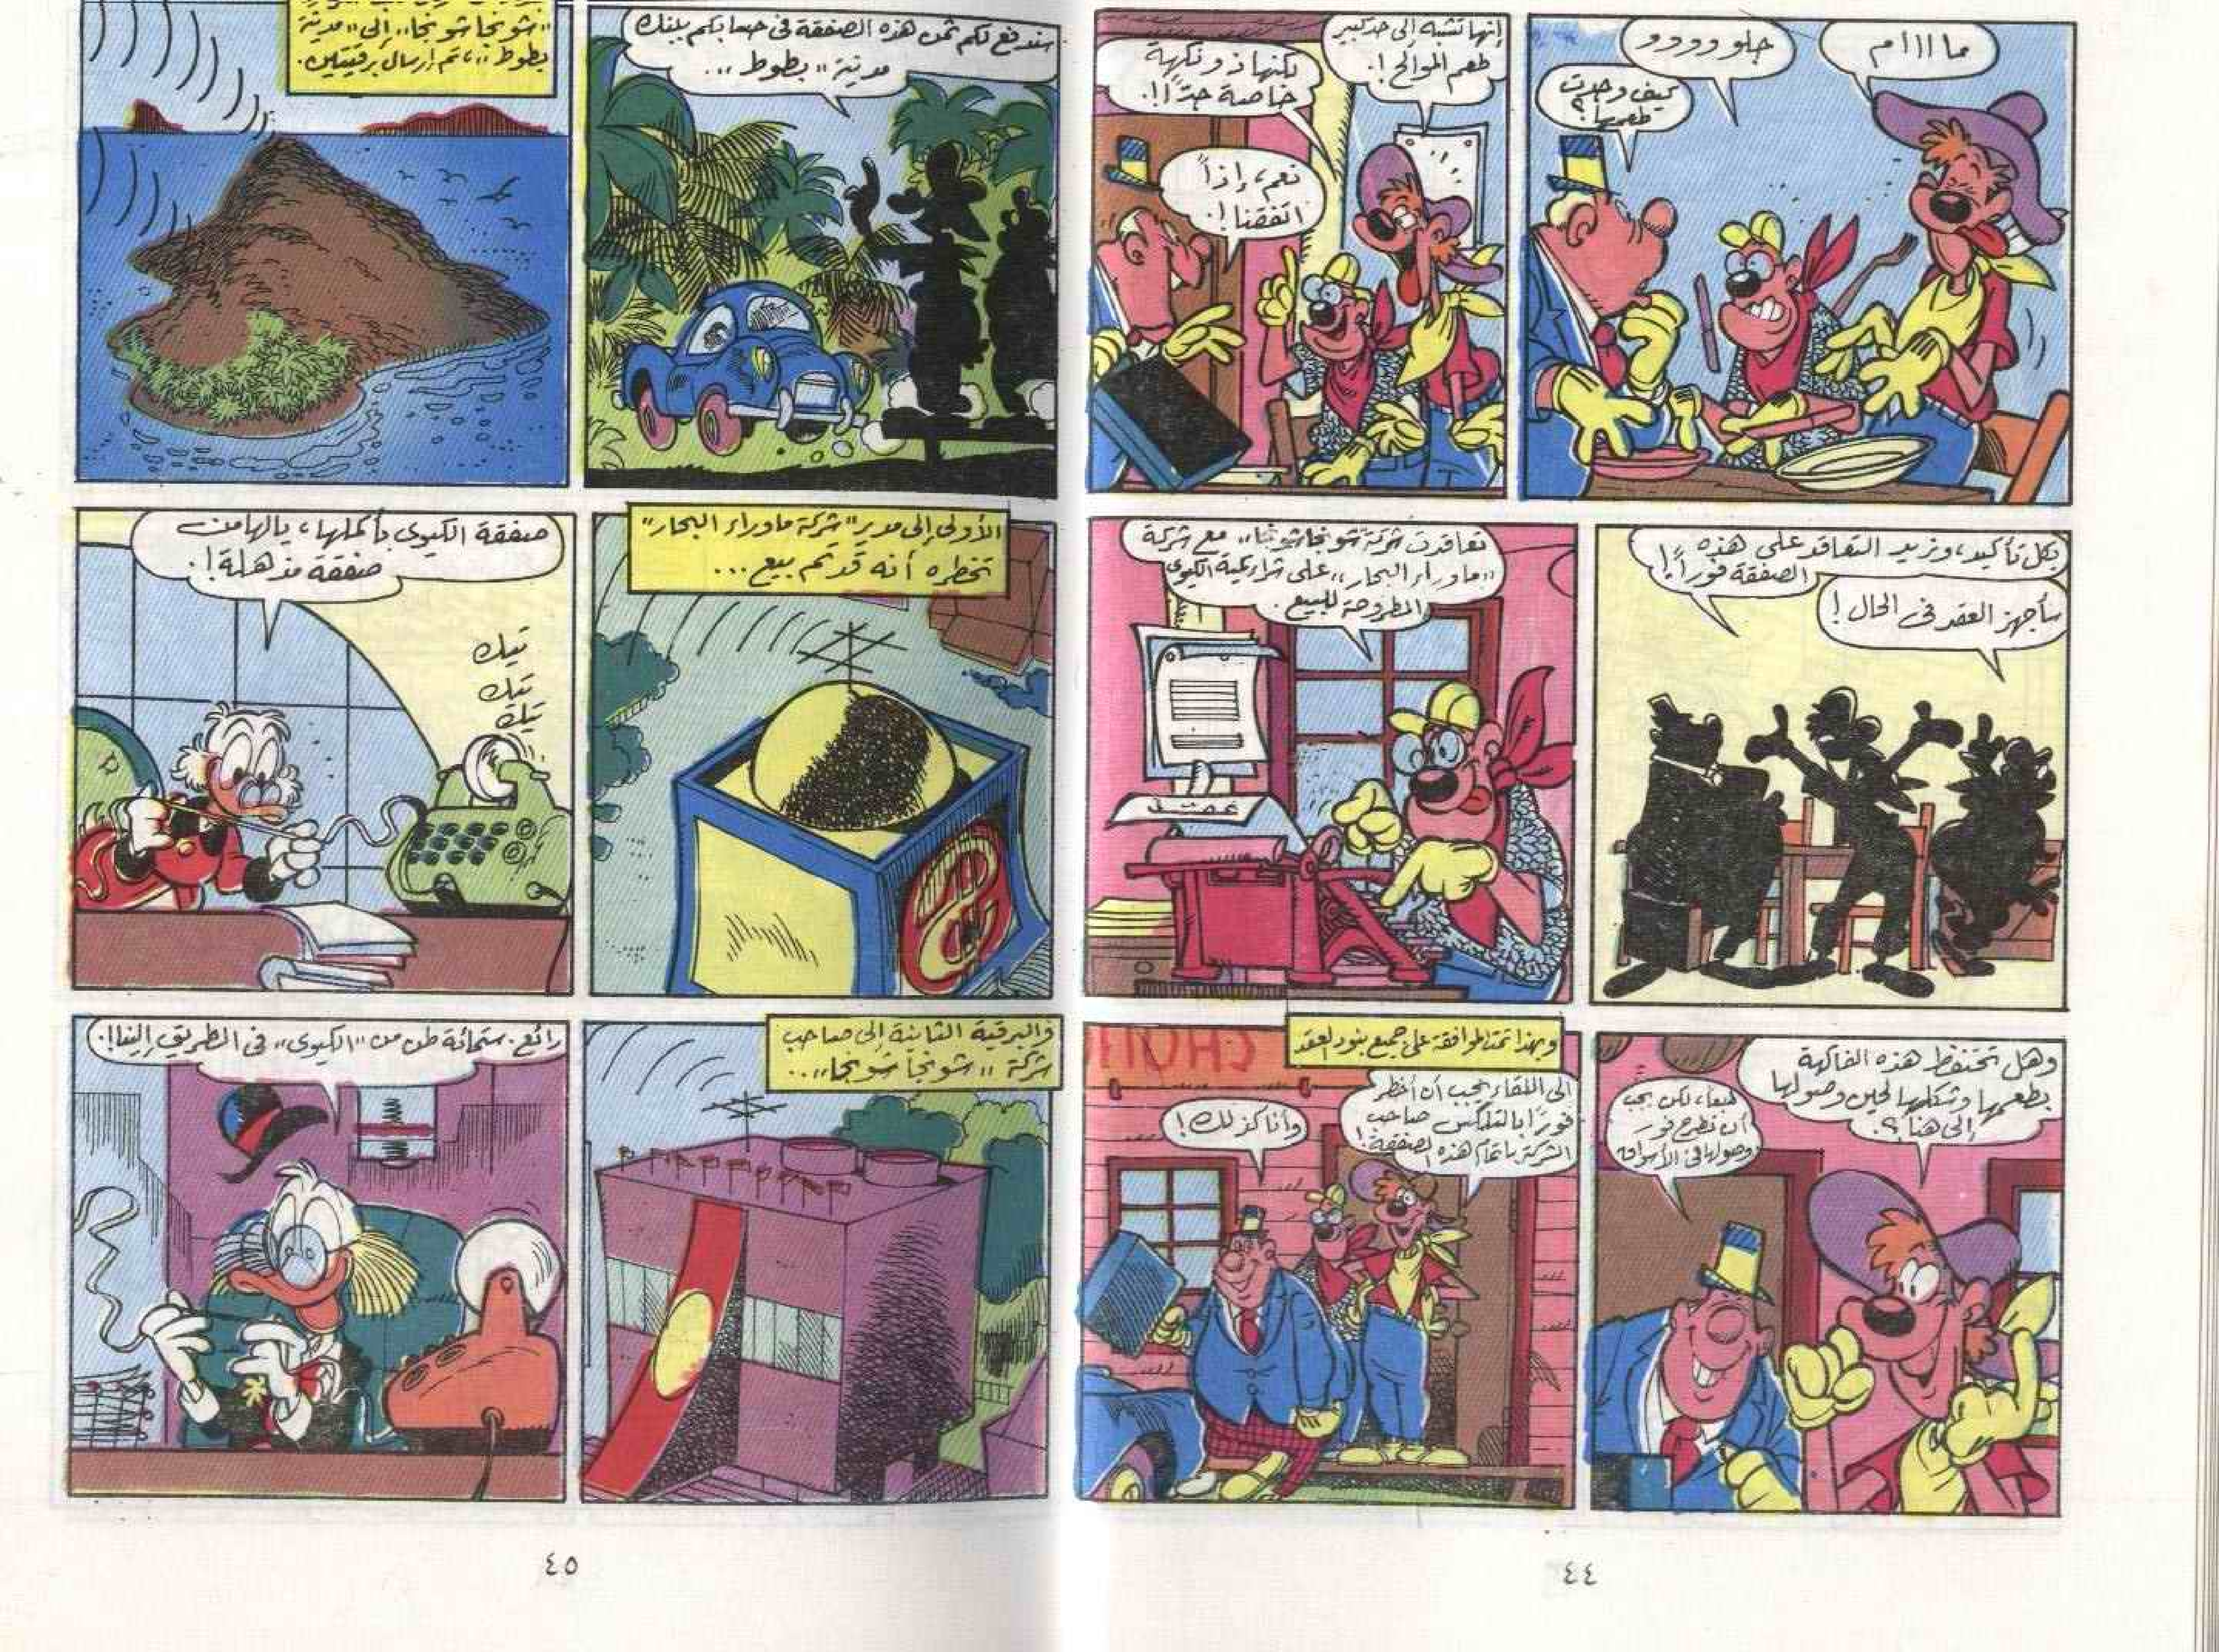 ماااام
حلوورور
كيف وجدت
طعمها؟
إنها تشبه إلى حد كبير
طعم الموالح!.
لكنها ذو نكهة
خاصة جدًا!.
نعم، إذاً
اتفقنا!.
بكل تأكيد، ونريد التعاقد على هذه
الصفقة فوراً!!
سأجهز العقد فى الحال!
تعاقدت شركة شونجا شونجا،، مع شركة
،،ماوراء البحار،، على شراء كمية الكيوى
المطروحة للبيع.
وهل تحتفظ هذه الفاكهة
بطعمها وشكلها لحين وصولها
إلى هنا؟.
طبعا، لكن يجب
أن تطرح فور
وصولها فى الأسواق
وبهذا تمت الموافقة على جميع بنود العقد
الى اللقاء يجب أن أخطر
فورًا بالتلكس صاحب
الشركة باتمام هذه الصفقة!
وأنا كذلك!
CHOU
٤٤
سندفع لكم ثمن هذه الصفقة فى حسابكم ببنك
مدينة ،،بطوط،،.
،،شونجا شونجا،، إلى ،،مدينة
بطوط،، ، تم إرسال برقيتين.
الأولى إلى مدير "شركة ماوراء البحار"
تخطره أنه قد تم بيع...
صفقة الكيوى بأكملها، يالها من
صفقة مذهلة!.
تيك
تيك
تيك
والبرقية الثانية إلى صاحب
شركة ،،شونجا شونجا،،..
رائع. ستمائة طن من ،،الكيوى،، فى الطريق إلينا!.
٤٥